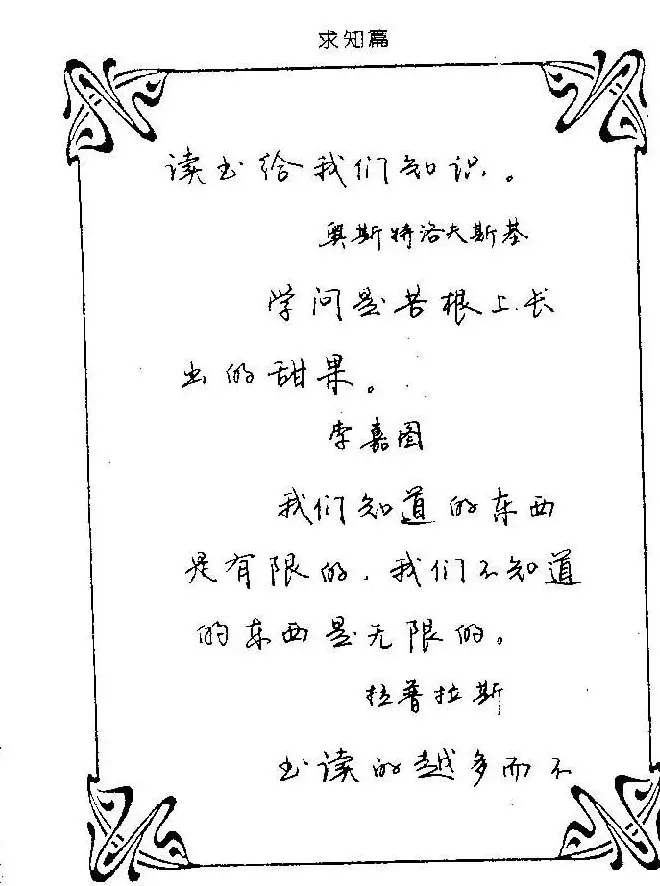 求知篇
读书给我们知识。
奥斯特洛夫斯基
学问是苦根上长
出的甜果。
李嘉图
我们知道的东西
是有限的,我们不知道
的东西是无限的。
拉普拉斯
书读的越多而不